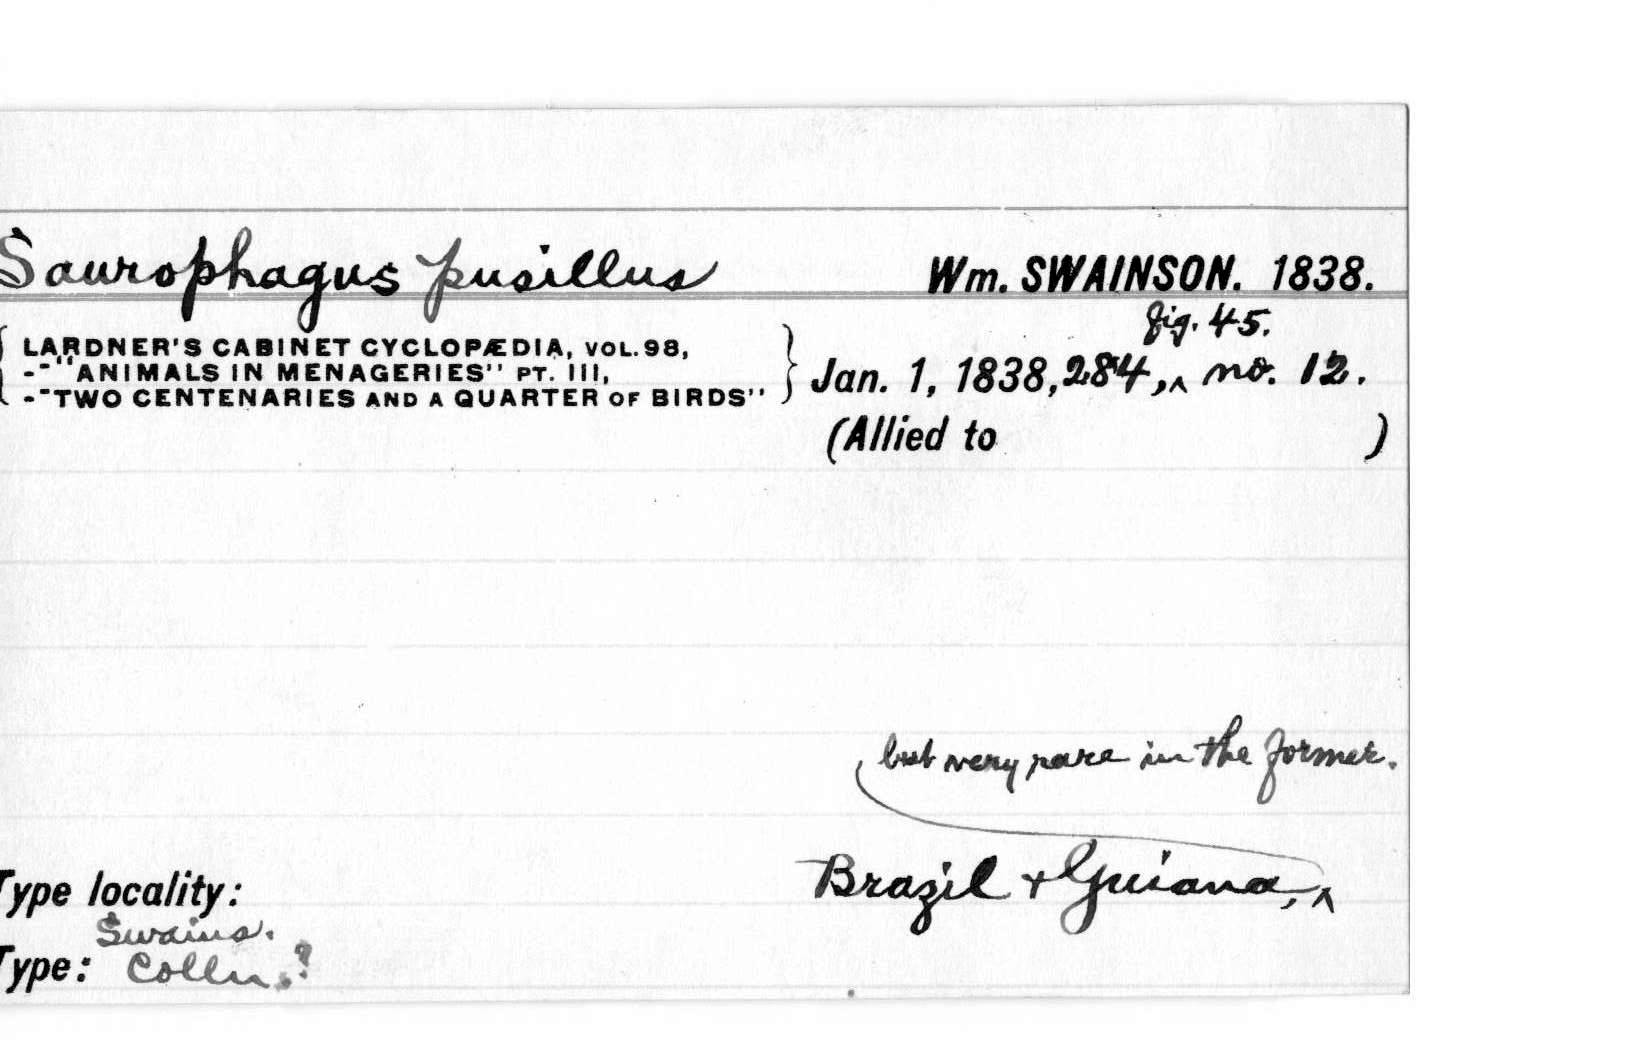 Saurophagus pusillus Wm. SWAINSON. 1838.
fig. 45.
{ LARDNER'S CABINET CYCLOPÆDIA, VOL. 98,
--"ANIMALS IN MENAGERIES" PT. III, } Jan. 1, 1838, 284,^ no. 12.
--"TWO CENTENARIES AND A QUARTER OF BIRDS"
(Allied to )
but very rare in the former.
Brazil + Guiana,^
Type locality:
Swains.
Type: Colln.?